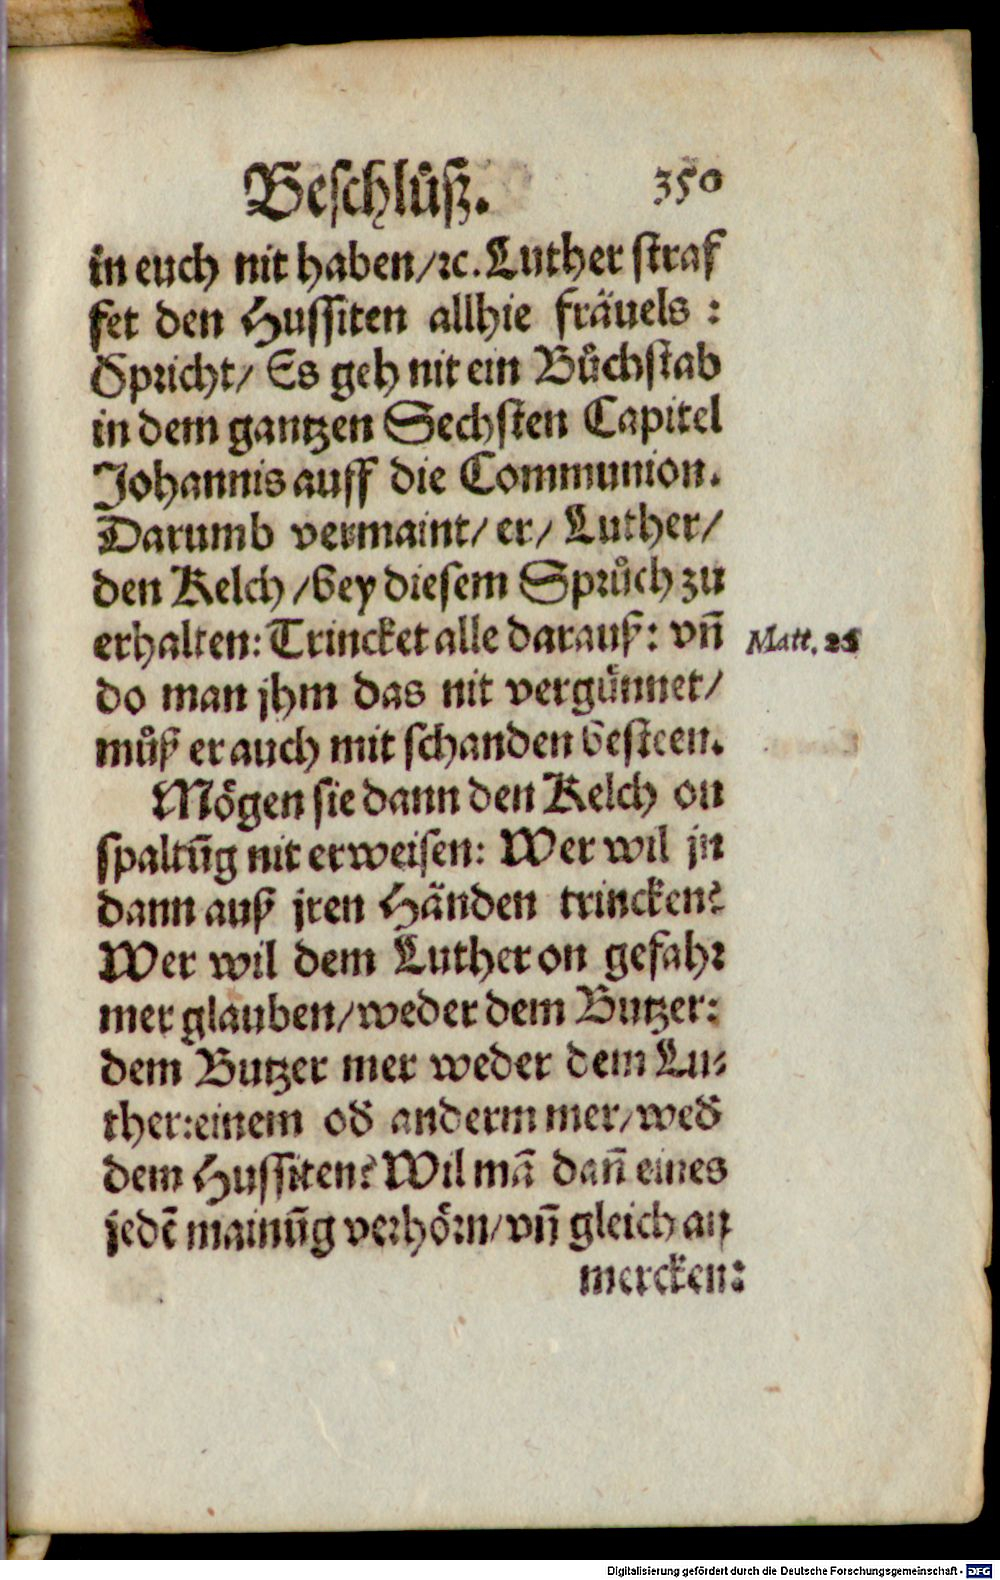 Beschlůß. 350
in euch nit haben/ꝛc. Luther straf
fet den Hussiten allhie fräuels :
Spricht/ Es geh nit ein Bůchstab
in dem gantzen Sechsten Capitel
Johannis auff die Communion.
Darumb vermaint/ er/ Luther/
den Kelch /bey diesem Sprůch zu
erhalten: Trincket alle darauß: vñ Matt. 26
do man jhm das nit vergünnet/
můß er auch mit schanden besteen.
Mögen sie dann den Kelch on
spaltũg nit erweisen: Wer wil jn
dann auß jren Händen trincken?
Wer wil dem Luther on gefahr
mer glauben/weder dem Butzer:
dem Butzer mer weder dem Lu⸗
ther:einem od̃ anderm mer/wed̃
dem Hussiten? Wil mã dañ eines
jedẽ mainũg verhörn/vñ gleich an
mercken:
Digitalisierung gefördert durch die Deutsche Forschungsgemeinschaft - DFG